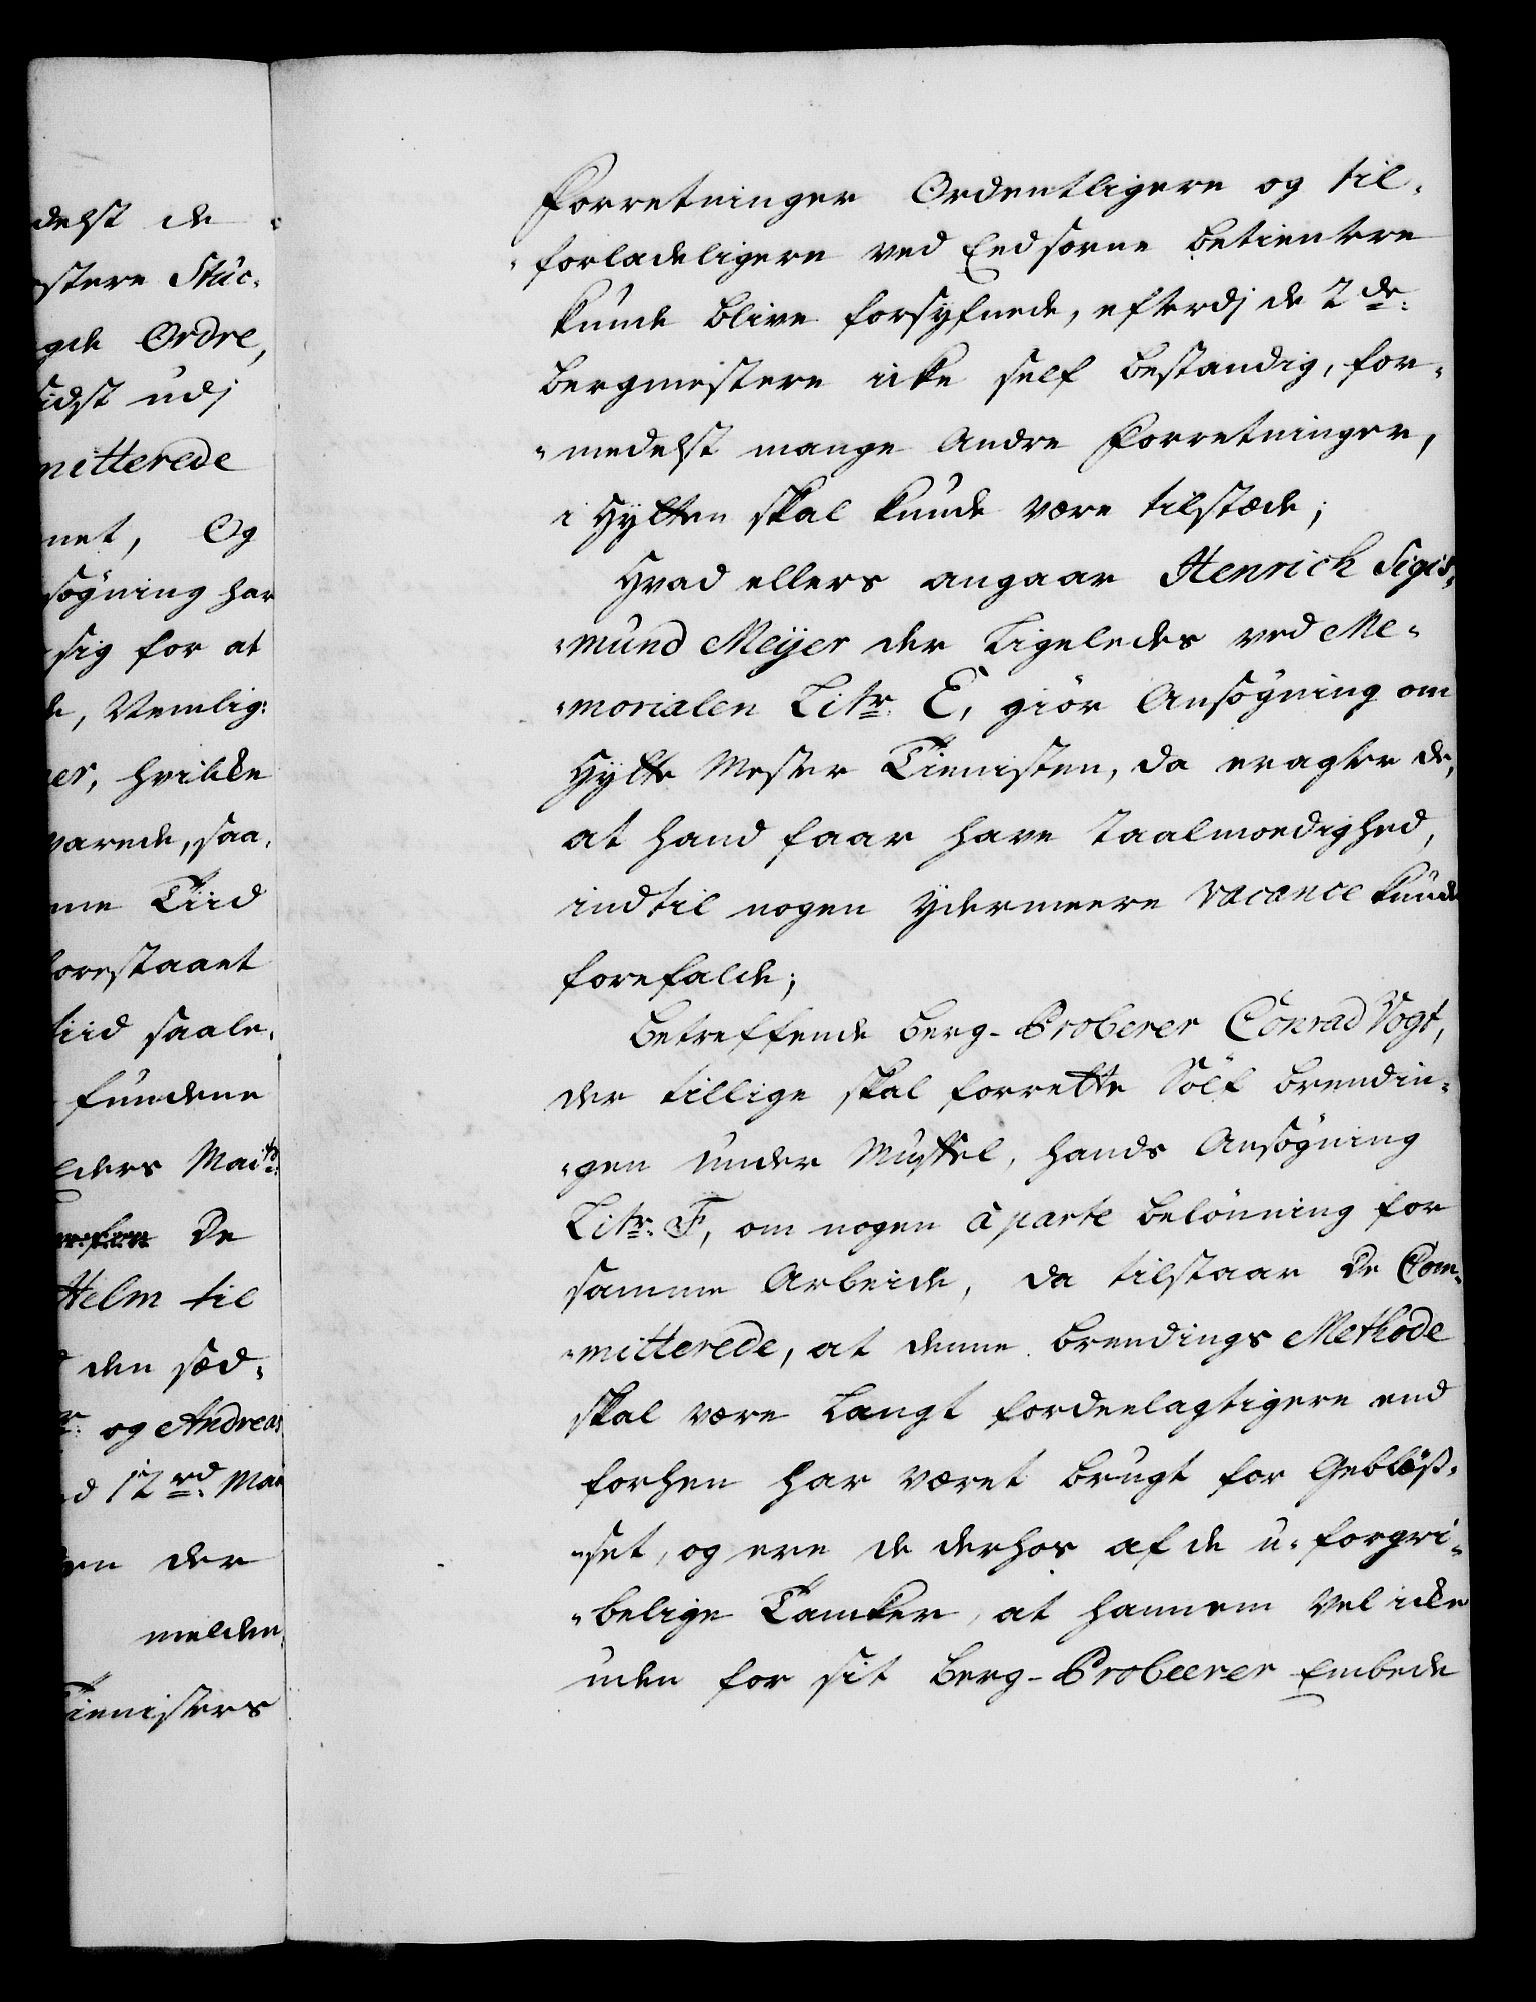 delst de
ostere Stüc-
gde Ordre,
sidst udj
mitterede
net, Og
søgning har
sig for at
de, Nemlig:
er, hvilke
varede, saa-
me Tiid
forestaaet
tiid saale-
fundene
elders Maits:
De
Helm til
den sød-
og Andreas
d 12rd. Mar
en der
melden
Tienisters
Forretninger Ordentligere og til-
-forladeligere ved Eedsorne betientere
kunde blive forsyfnede, efterdj de 2de:
bergmestere icke self bestandig, for-
-medelst mange Andre Forretninger,
i Hytten skal kunde være tilstæde;
Hvad ellers angaar Henrich Sigis-
-mund Meÿer der Ligeledes ved Me-
-morialen Litr. E, giør Ansøgning om
Hytte Mester Tienisten, da eragter de,
at hand faar have Taalmodighed,
indtil nogen ydermeere vacance kunde
forefalde;
Betreffende berg-Proberer Conrad Vogt,
der tillige skal forrette Sølf brendin-
-gen under Muffel, hands Ansøgning
Litr. F, om nogen à parte belønning for
samme Arbeide, da tilstaar De Com-
-mitterede, at denne brendings Methode
skal være Langt fordeelagtigere end
forhen har været brugt for Gebløß-
-set, og ere de derhos af de u-forgri-
-belige Tancker, at hannem vel icke
uden for sit Berg-Probeerer Embede